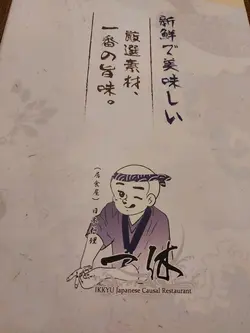 新鮮で美味しい
厳選素材、
一番の旨味。
(居食屋) 日本料理
一休
IKKYU Japanese Causal Restaurant